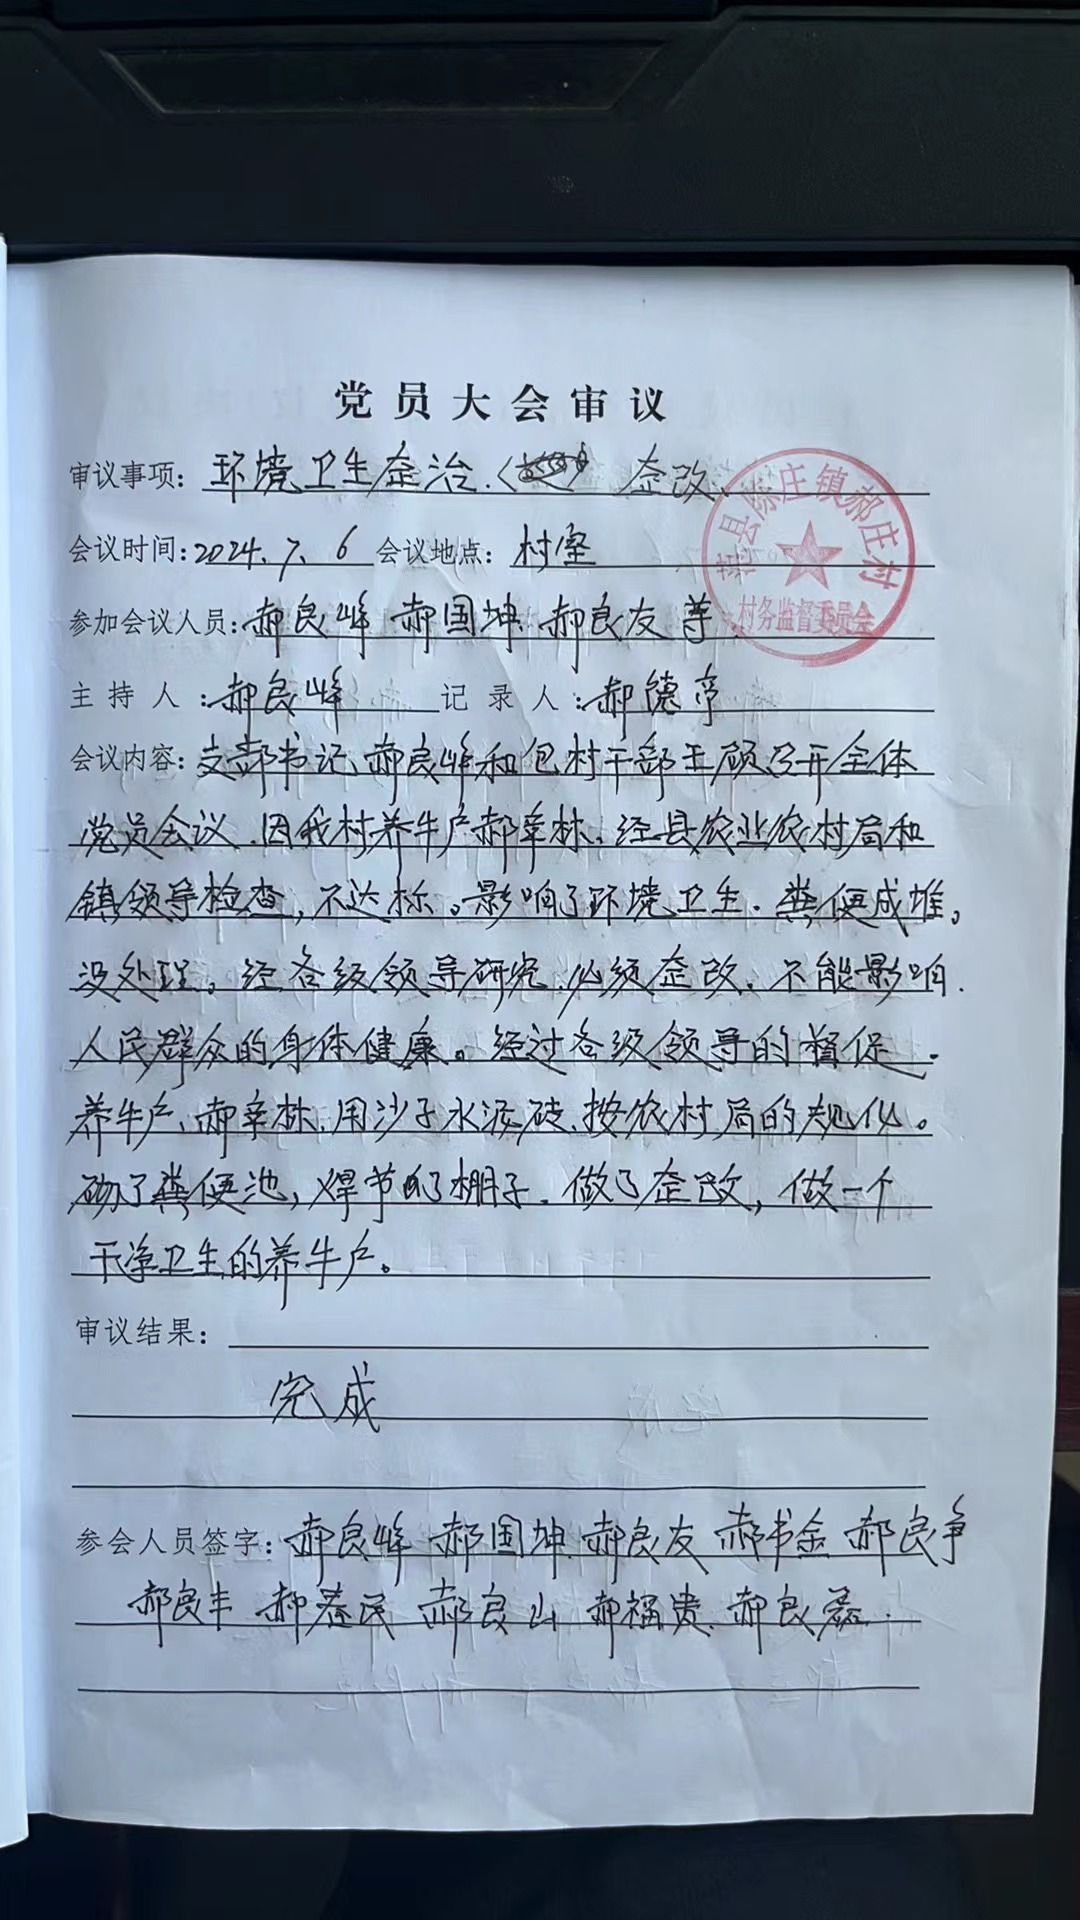 党员大会审议
审议事项：环境卫生歪治、歪改、
会议时间：2024.7.6 会议地点：村室
参加会议人员：郝良峰 郝国坤 郝良友 等
主持人：郝良峰 记录人：郝德亭
会议内容：支部书记郝良峰和包村干部王顾召开全体
党员会议、因我村养牛户郝辛林、经县农业农村局和
镇领导检查，不达标。影响了环境卫生、粪便成堆。
没处理。经各级领导研究、必须歪改、不能影响、
人民群众的身体健康。经过各级领导的督促、
养牛户、郝辛林、用沙子水泥砖、按农村局的规化。
砌了粪便池，焊节了棚子、做了歪改，做一个
干净卫生的养牛户。
审议结果：
完成
参会人员签字：郝良峰 郝国坤 郝良友 郝书金 郝良争
郝良丰 郝春民 郝良山 郝福贵 郝良磊
范县陈庄镇郝庄村
村务监督委员会